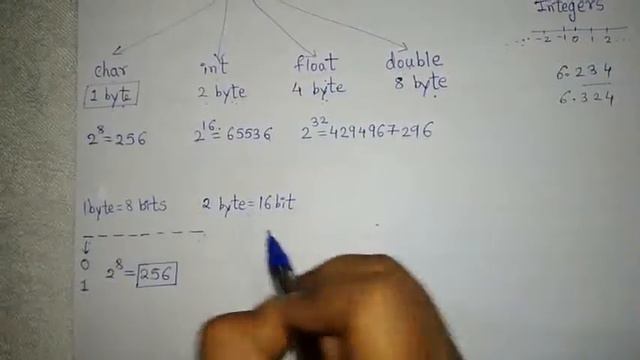 Integers
... -2 -1 0 1 2 ...
char int float double
1 byte 2 byte 4 byte 8 byte
6.234
6.324
2^8 = 256 2^16 = 65536 2^32 = 4294967296
1byte = 8 bits 2 byte = 16 bit
0
1 2^8 = 256